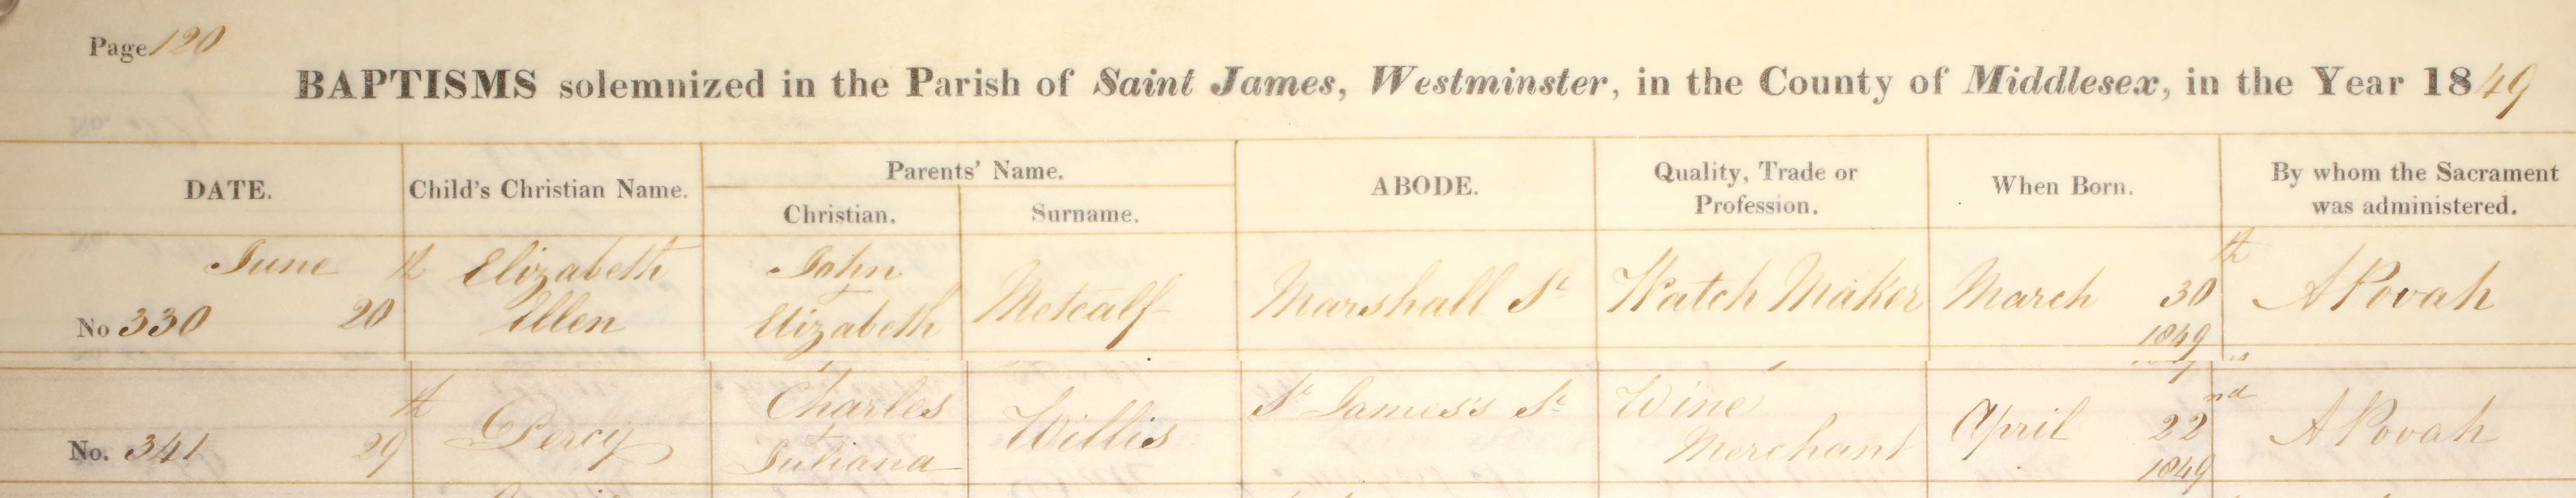 Page 120
BAPTISMS solemnized in the Parish of Saint James, Westminster, in the County of Middlesex, in the Year 1849
DATE. Child's Christian Name. Parents' Name. Christian. Surname. ABODE. Quality, Trade or Profession. When Born. By whom the Sacrament was administered.
June th Elizabeth John th
No 330 20 Ellen Elizabeth Metcalf Marshall St Watch Maker March 30 A Povah
1849
th Charles St James's St Wine nd
No. 341 29 Percy Juliana Willis Merchant April 22 A Povah
1849